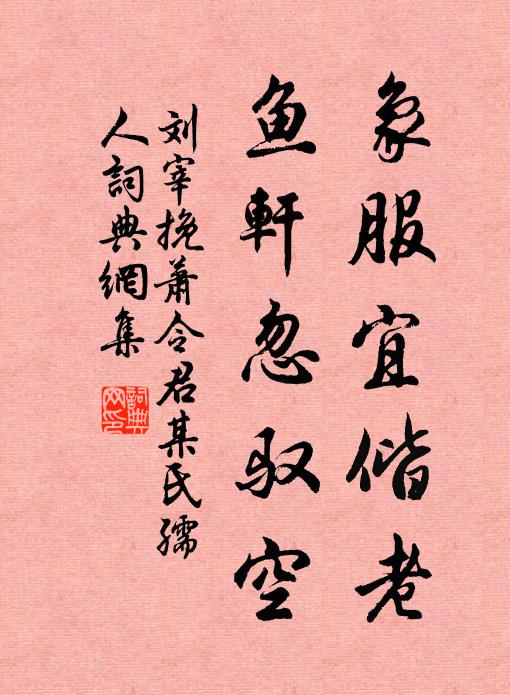 象服宜偕老
鱼軒忽驭空
刘宰挽萧令君某氏孺
人詞典網集
詞典
网印